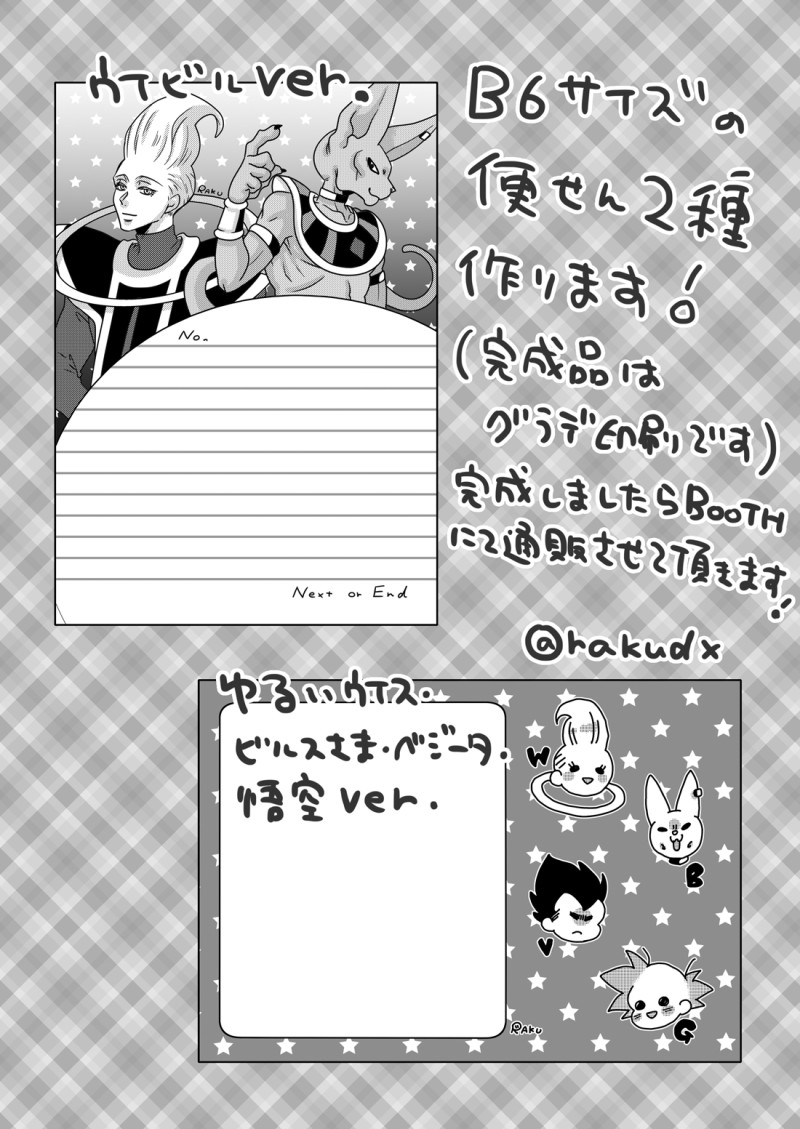 ウイビルver.
RAKU
No.
Next or End
B6サイズの
便せん2種
作ります!
(完成品は
グラデ印刷です)
完成しましたらBOOTH
にて通販させて頂きます!
@rakudx
ゆるいウイス・
ビルスさま・ベジータ・
悟空ver.
W
B
V
G
RAKU